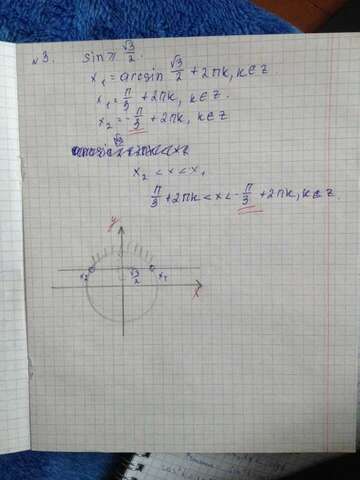 №3. sin x > √3/2.
x₁ = arcsin √3/2 + 2πk, k∈Z
x₁ = π/3 + 2πk, k∈Z.
x₂ = -π/3 + 2πk, k∈Z
x₂ < x < x₁
π/3 + 2πk < x < -π/3 + 2πk, k∈Z
y
x₂ √3/2 x₁
x